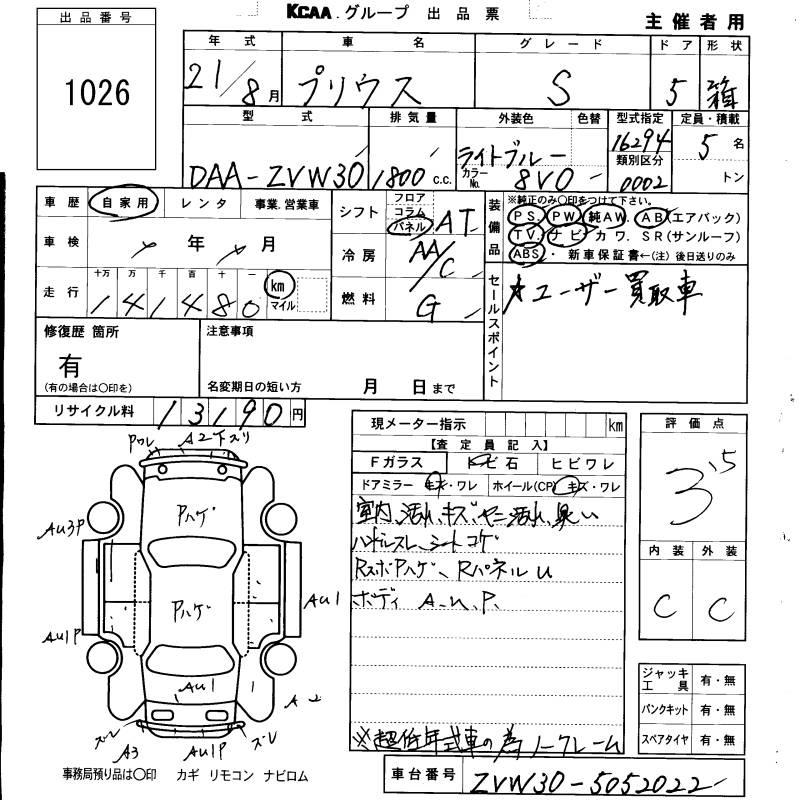 KCAA. グループ 出品票
主催者用
出品番号
1026
年式 車名 グレード ドア 形状
21/8月 プリウス S 5 箱
型式 排気量 外装色 色替 型式指定 定員・積載
DAA-ZVW30 1800 c.c. ライトブルー カラーNo. 8V0 16294 類別区分 0002 5名 トン
車歴 自家用 レンタ 事業.営業車
車検 年 月
走行 十万 万 千 百 十 一 km マイル
141480
シフト フロア コラム パネル AT
冷房 AA/C
燃料 G
装備品 ※純正のみ〇印をつけて下さい。
PS. PW 純AW. AB(エアバック)
TV. ナビ カワ. SR(サンルーフ)
ABS・ 新車保証書←(注) 後日送りのみ
セールスポイント
ユーザー買取車
修復歴 箇所
有
(有の場合は〇印を)
注意事項
名変期日の短い方 月 日まで
リサイクル料 13190円
現メーター指示 km
【査定員記入】
Fガラス トビ石 ヒビワレ
ドアミラー キズ・ワレ ホイール(CP) キズ・ワレ
室内汚れ、キズ、ヤニ汚れ、臭い
ハンドルスレ、シートコゲ
RズボPハゲ、Rパネル U
ボディ A.U.P.
※超低年式車の為ノークレーム
評価点
3.5
内装 外装
C C
ジャッキ工具 有・無
パンクキット 有・無
スペアタイヤ 有・無
車台番号 ZVW30-5052022
Pワレ A2下スリ
Pハゲ
AU3P
Pハゲ
AU1
AU1P
AU1
A2
ズレ ズレ
A3 AU1P
事務局預り品は〇印 カギ リモコン ナビロム